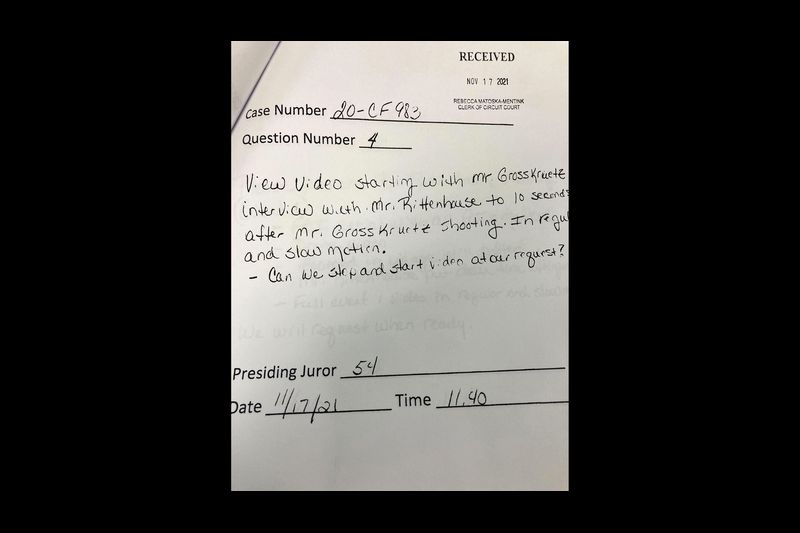 RECEIVED
NOV 17 2021
REBECCA MATOSKA-MENTINK
CLERK OF CIRCUIT COURT
Case Number 20-CF983
Question Number 4
View Video starting with Mr. GrossKruetz
interview with Mr. Rittenhouse to 10 seconds
after Mr. GrossKruetz shooting. In regul
and slow motion.
- Can we stop and start video at our request?
- Full event 1 video in regular and slow
We will request when ready.
Presiding Juror 54
Date 11/17/21 Time 11:40